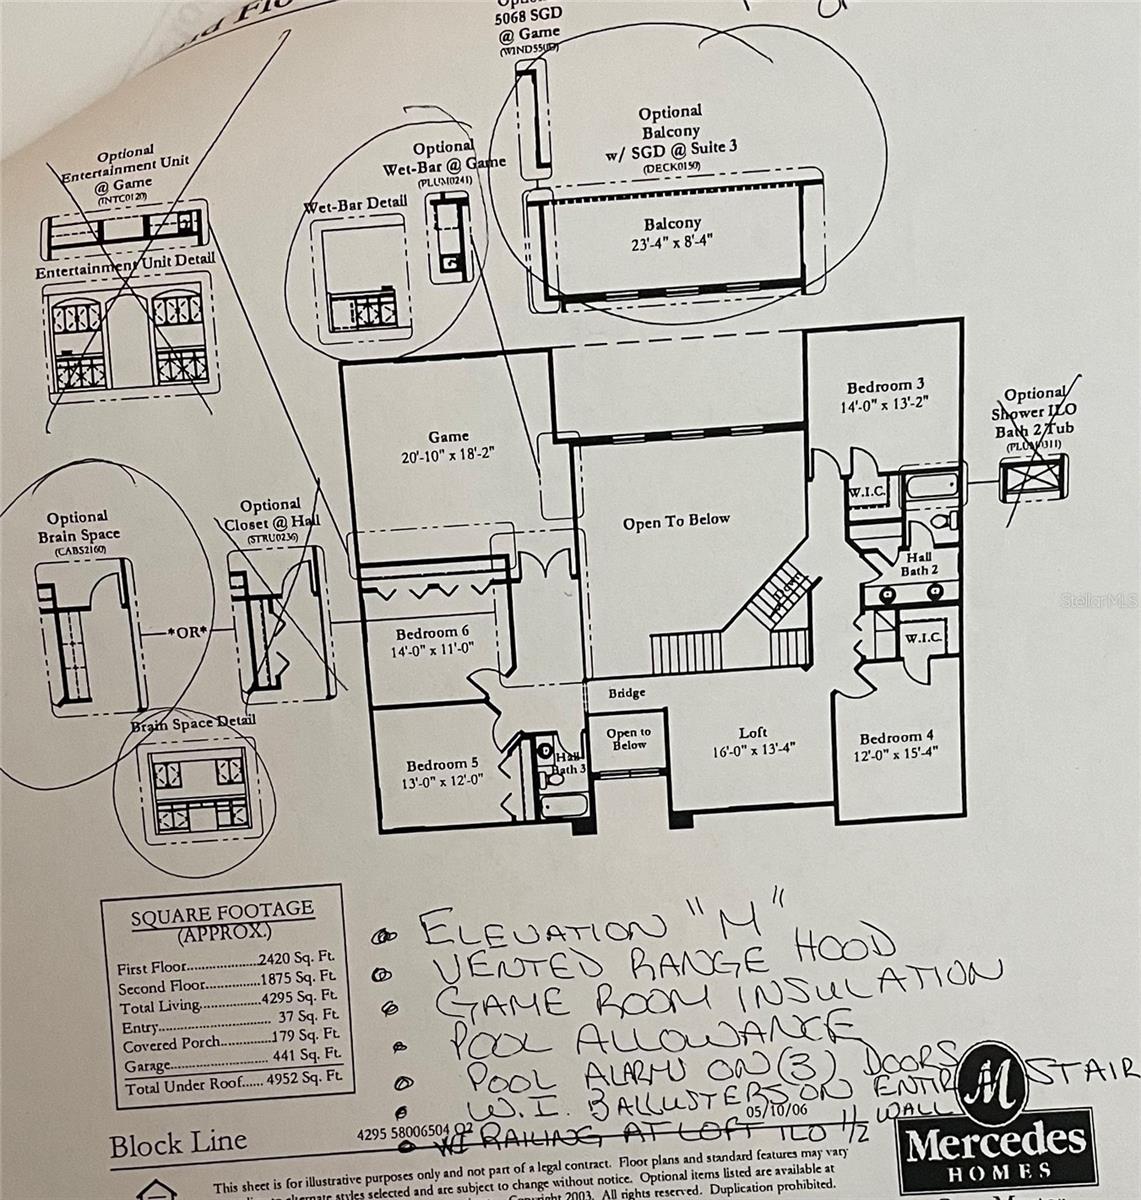 5068 SGD
@ Game
(WIND5500)
Optional
Balcony
w/ SGD @ Suite 3
(DECK0150)
Balcony
23'-4" x 8'-4"
Optional
Entertainment Unit
@ Game
(INTC0120)
Entertainment Unit Detail
Optional
Wet-Bar @ Game
(PLUM0241)
Wet-Bar Detail
Bedroom 3
14'-0" x 13'-2"
Optional
Shower ILO
Bath 2 Tub
(PLUM0311)
Game
20'-10" x 18'-2"
W.I.C.
Open To Below
Hall
Bath 2
Optional
Brain Space
(CABS2160)
*OR*
Optional
Closet @ Hall
(STRU0236)
Brain Space Detail
Bedroom 6
14'-0" x 11'-0"
Down
W.I.C.
Bridge
Open to
Below
Loft
16'-0" x 13'-4"
Bedroom 4
12'-0" x 15'-4"
Bedroom 5
13'-0" x 12'-0"
Hall
Bath 3
StellarMLS
SQUARE FOOTAGE
(APPROX.)
First Floor....................2420 Sq. Ft.
Second Floor...............1875 Sq. Ft.
Total Living.................4295 Sq. Ft.
Entry................................ 37 Sq. Ft.
Covered Porch..............179 Sq. Ft.
Garage........................... 441 Sq. Ft.
Total Under Roof...... 4952 Sq. Ft.
ELEVATION "M"
VENTED RANGE HOOD
GAME ROOM INSULATION
POOL ALLOWANCE
POOL ALARM ON (3) DOORS
W.I. BALLUSTERS ON ENTIRE STAIR
WI RAILING AT LOFT ILO 1/2 WALL
Block Line
4295 58006504 02
05/10/06
M
Mercedes
HOMES
This sheet is for illustrative purposes only and not part of a legal contract. Floor plans and standard features may vary
alternate styles selected and are subject to change without notice. Optional items listed are available at
Copyright 2003. All rights reserved. Duplication prohibited.